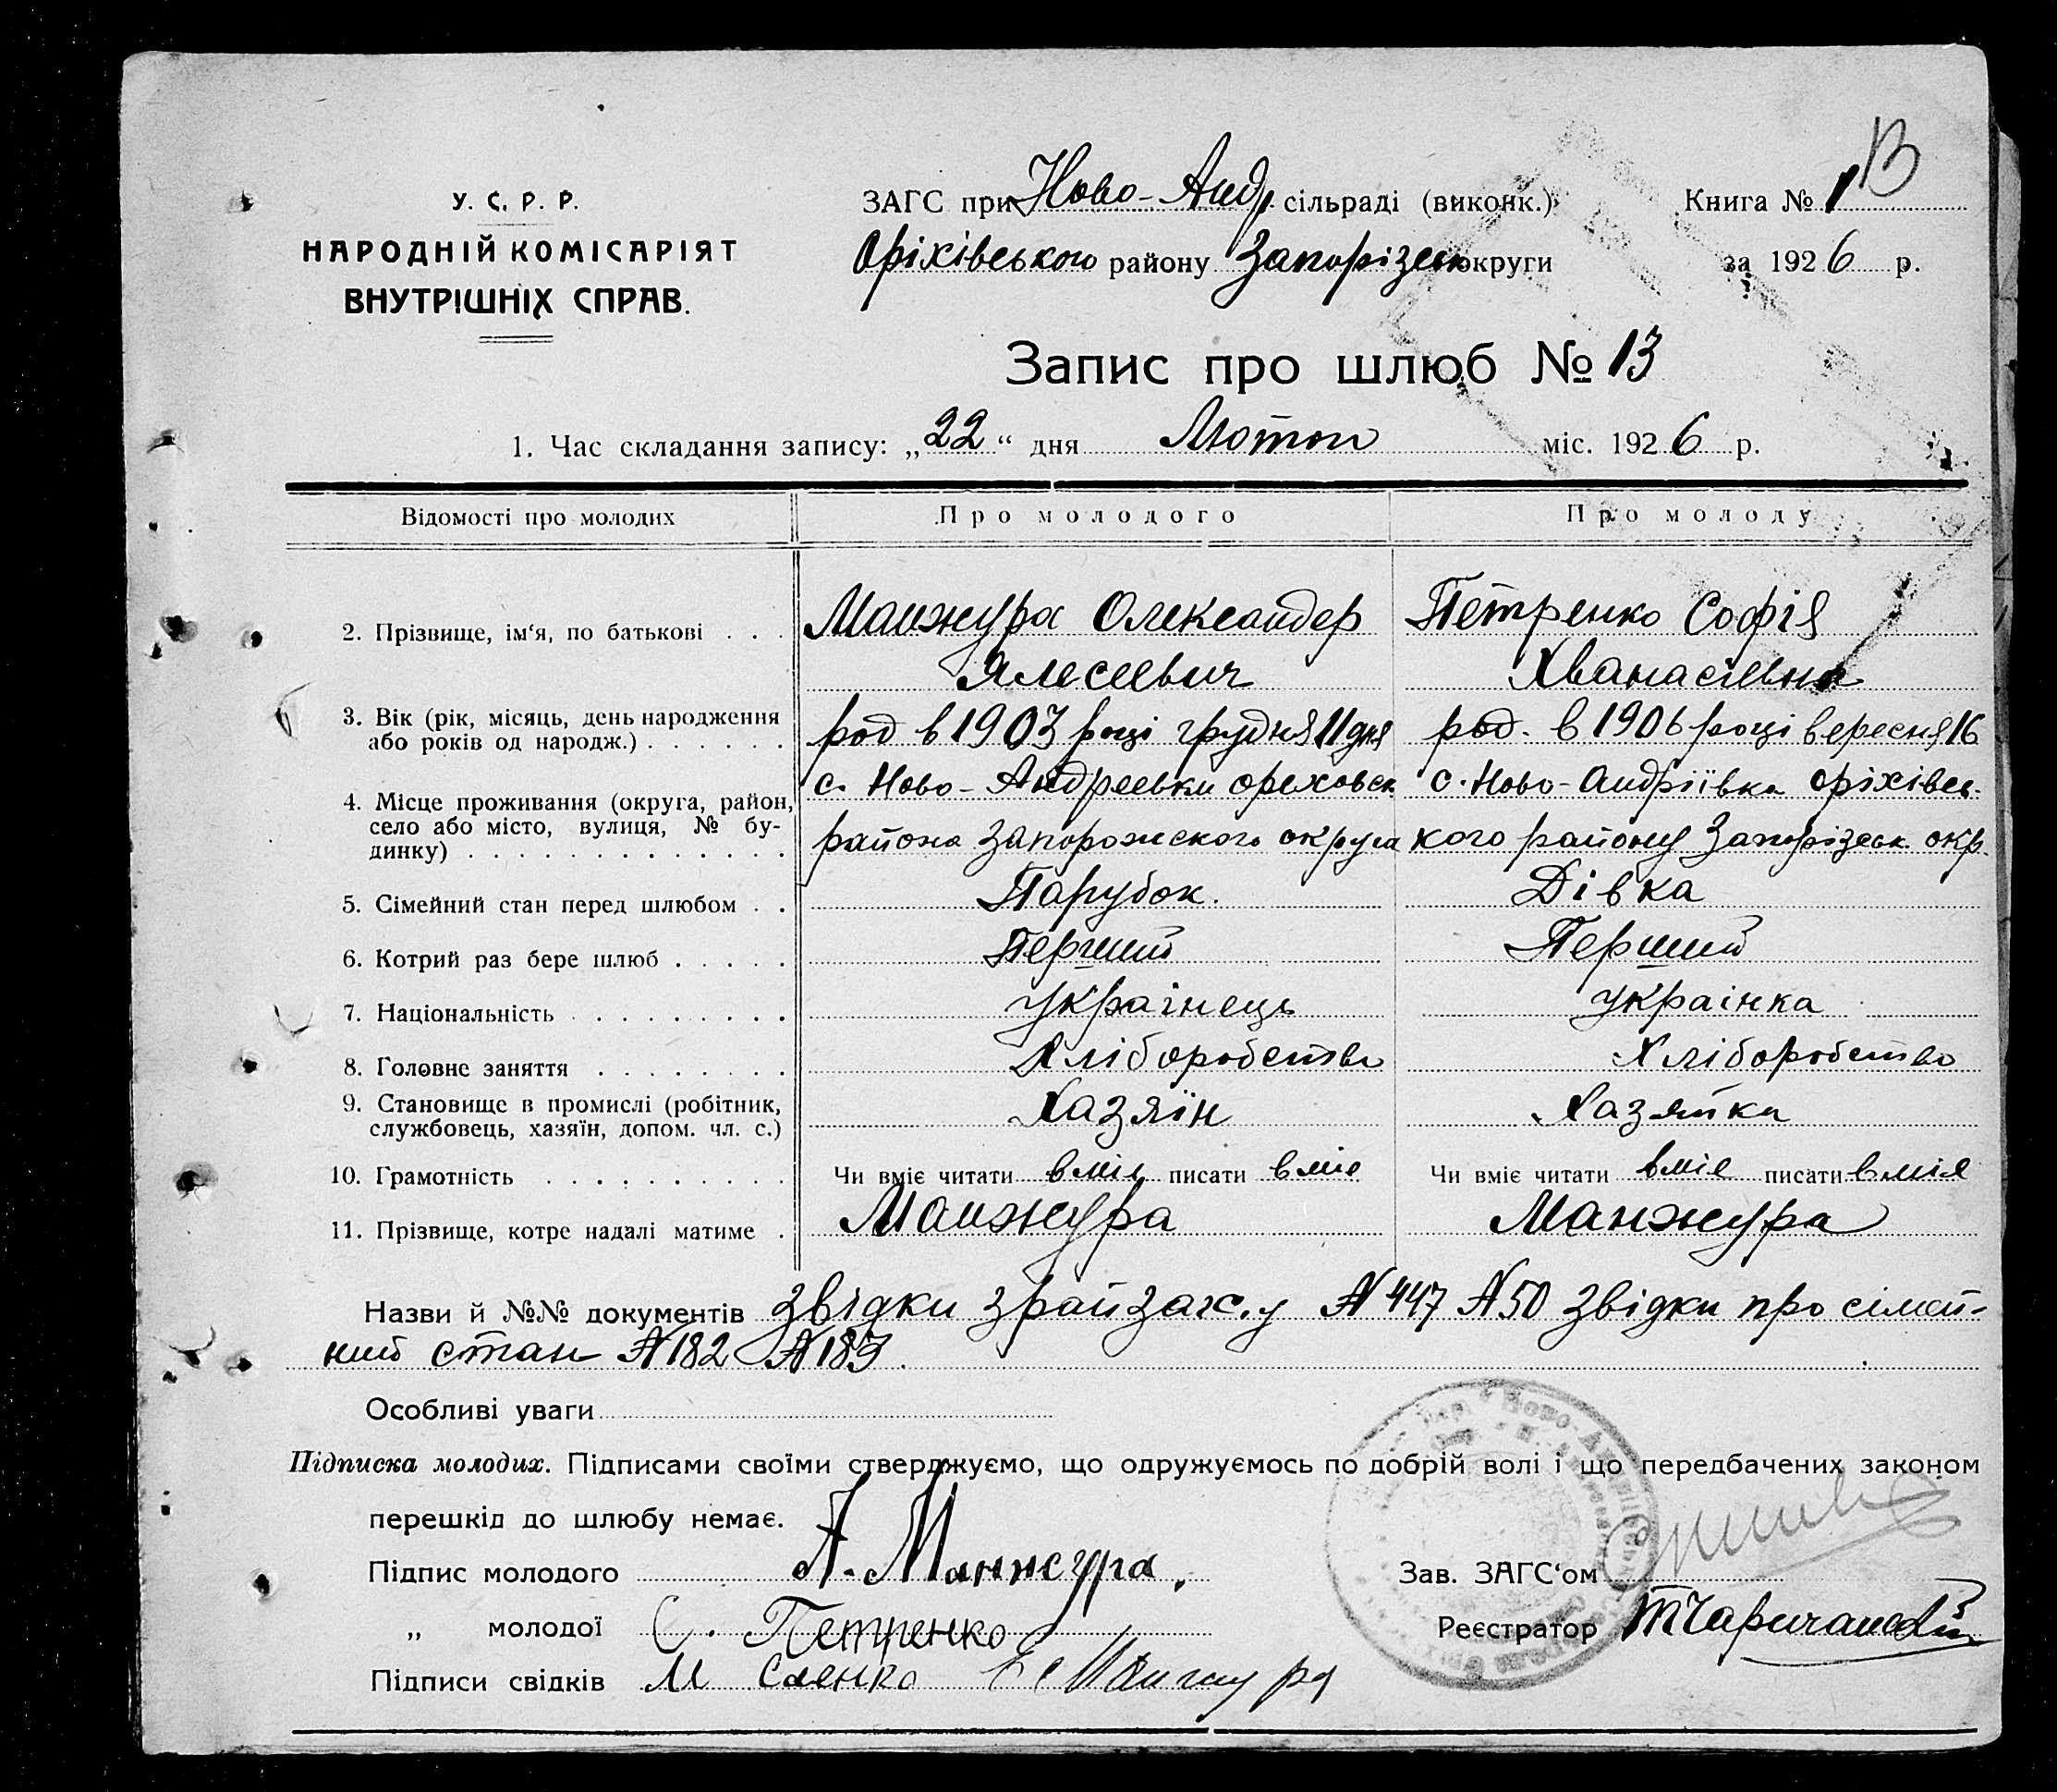 У. С. Р. Р.
НАРОДНІЙ КОМІСАРІЯТ
ВНУТРІШНІХ СПРАВ.
ЗАГС при Ново-Андр. сільраді (виконк.)
Оріхівського району Запорізськ округи
Книга № 1
за 1926 р.
Запис про шлюб № 13
1. Час складання запису: „22“ дня Лютого міс. 1926 р.
Відомості про молодих Про молодого Про молоду
2. Прізвище, ім‘я, по батькові . . . Манжура Олександер Петренко Софія
Алесеевич Хванасіевна
3. Вік (рік, місяць, день народження або років од народж.) . . . . . . род в 1903 році грудня 11 дня род. в 1906 році вересня 16
4. Місце проживання (округа, район, село або місто, вулиця, № будинку) . . . . . . . . . . . . .
с. Ново-Андреевки ореховск с. Ново-Андріївка Оріхівсь-
района Запорожского округа кого району Запорізськ. окр.
5. Сімейний стан перед шлюбом . . Парубок. Дівка
6. Котрий раз бере шлюб . . . . . Перший Перший
7. Національність . . . . . . . . . українець українка
8. Головне заняття . . . . . . . . Хліборобство Хліборобство
9. Становище в промислі (робітник, службовець, хазяїн, допом. чл. с.) Хазяїн Хазяйка
10. Грамотність . . . . . . . . . . Чи вміє читати вміє писати вміє Чи вміє читати вміє писати вміє
11. Прізвище, котре надалі матиме . Манжура Манжура
Назви й №№ документів звідки з райзагсу № 447 № 50 звідки про сімей-
ний стан № 182 № 183.
Особливі уваги
Підписка молодих. Підписами своїми стверджуємо, що одружуємось по добрій волі і що передбачених законом
перешкід до шлюбу немає.
Підпис молодого А. Манжура.
Зав. ЗАГС‘ом
„ молодої С. Петренко
Реєстратор
Підписи свідків М Саенко Манжура